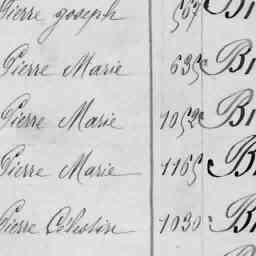 Pierre joseph 567 Bi
Pierre Marie 635 Bi
Pierre Marie 1052 Bi
Pierre Marie 1165 Bi
Pierre Célestin 1030 Bi